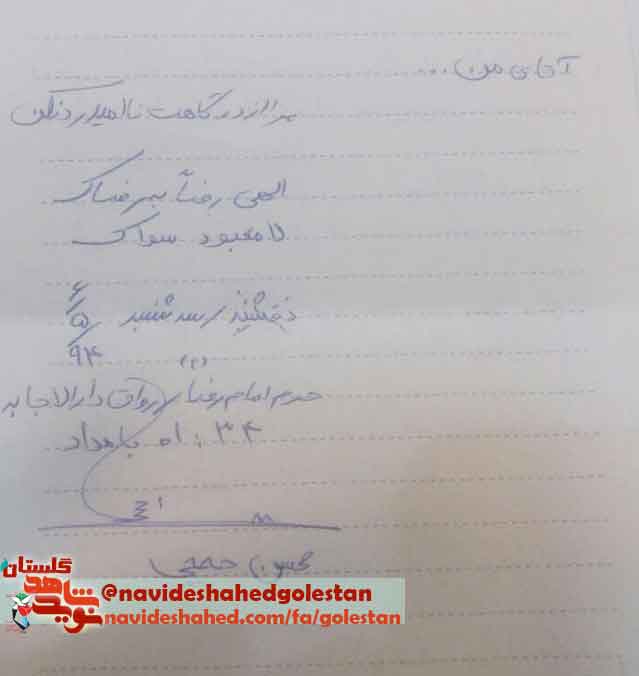 آقای من ...
مرا از درگاهت نا امید رد نکن
الهی رضاً برضاک
لا معبود سواک
سه شنبه
۶/۵/۹۴
(۲)
حرم امام رضا رواق دارالاجابه
بامداد
محسن
گلستان
نوید شاهد
@navideshahedgolestan
navideshahed.com/fa/golestan